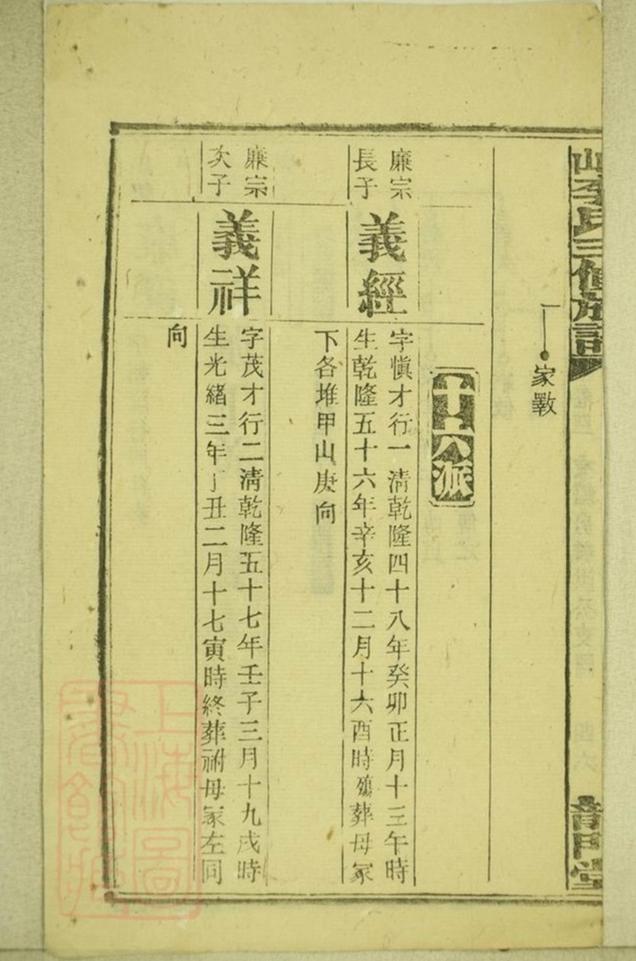 山李氏三修族譜
家斅
公派
廉宗
長子
義經
字慎才行一清乾隆四十八年癸卯正月十三午時
生乾隆五十六年辛亥十二月十六酉時殤葬母冢
下各堆甲山庚向
廉宗
次子
義祥
字茂才行二清乾隆五十七年壬子三月十九戌時
生光緒三年丁丑二月十七寅時終葬祔母冢左同
向
上海圖
書館藏